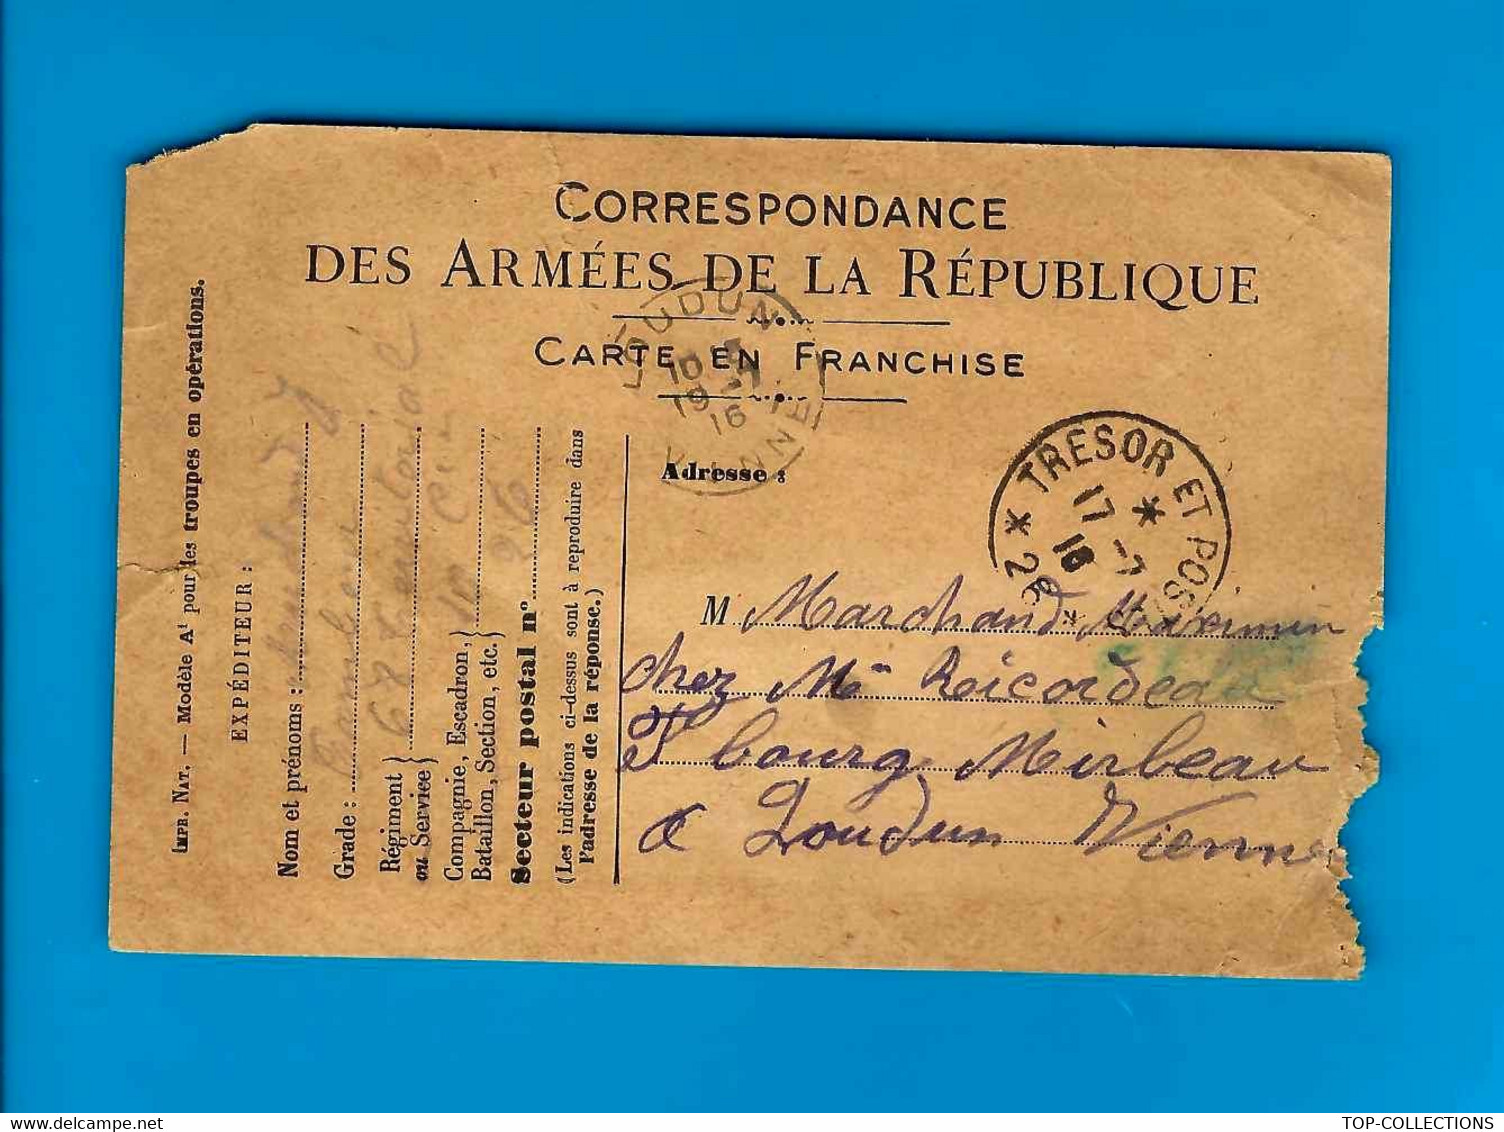 CORRESPONDANCE
DES ARMÉES DE LA RÉPUBLIQUE
CARTE EN FRANCHISE
LOUDUN
10
19 -7
16
VIENNE
TRESOR ET POSTES
17 -7
16
* 26 *
IMPR. NAT. — Modèle A¹ pour les troupes en opérations.
EXPÉDITEUR :
Nom et prénoms :
Grade :
Régiment
ou Service} 67 Territorial
Compagnie, Escadron,
Bataillon, Section, etc.}
Secteur postal n° 96
(Les indications ci-dessus sont à reproduire dans
l'adresse de la réponse.)
Adresse :
M Marchand Maximin
chez Mme Roicordeau
Fg bourg Mirbeau
a Loudun Vienne
TOP-COLLECTIONS
delcampe.net